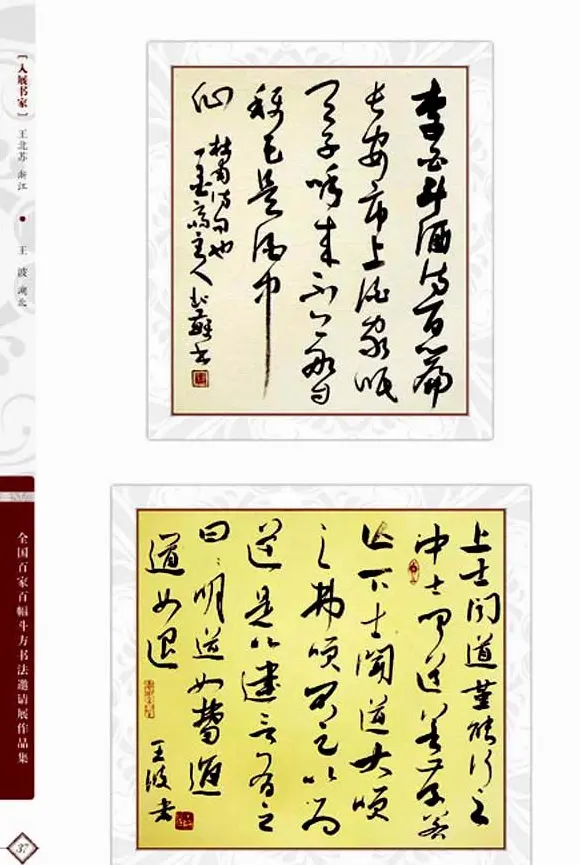 李白斗酒诗百篇
长安市上酒家眠
天子呼来不上船自
称臣是酒中
仙
杜甫诗句也
主人北苏书
上士闻道堇能行之
中士闻道若存若
亡下士闻道大笑
之弗笑不足以为
道是以建言有之
曰明道如费进
道如退
王波书
［入展书家］ 王北苏 浙江 • 王 波 湖北
全国百家百幅斗方书法邀请展作品集
37